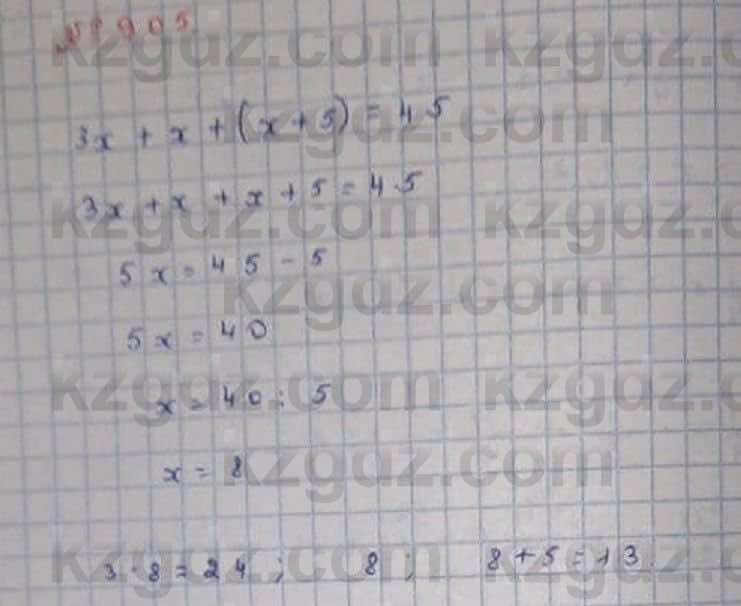 № 905
3x + x + (x + 5) = 45
3x + x + x + 5 = 45
5x = 45 - 5
5x = 40
x = 40 : 5
x = 8
3 · 8 = 24 ; 8 ; 8 + 5 = 13.
kzgdz.com kzgdz.com
kzgdz.com
kzgdz.com kzgdz.com
kzgdz.com
kzgdz.com kzgdz.com
kzgdz.com
kzgdz.com kzgdz.com